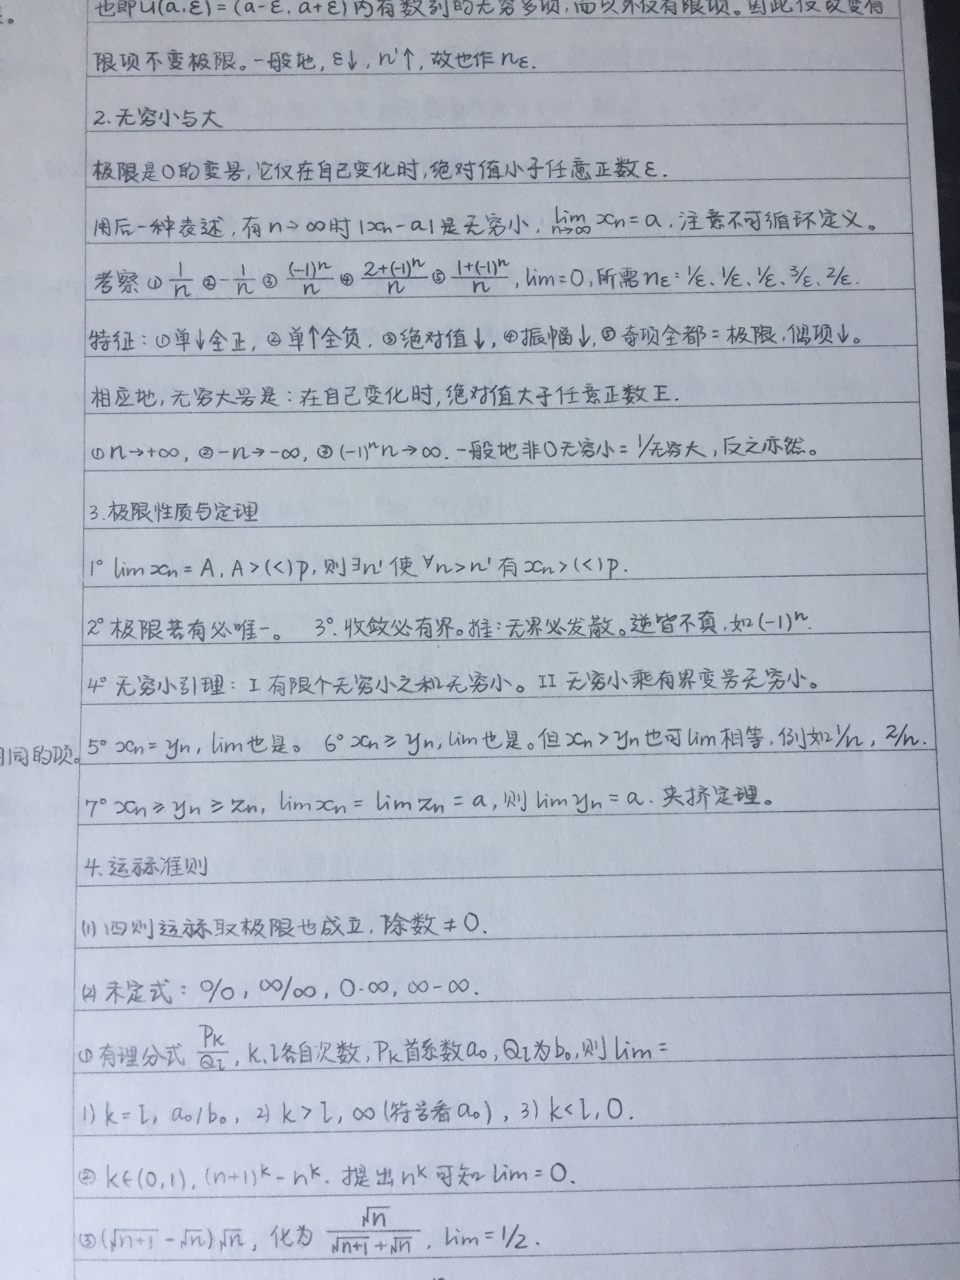 也即U(a,ε)=(a-ε,a+ε)内有数列的无穷多项,而以外仅有限项。因此仅改变有
限项不变极限。一般地,ε↓,n'↑,故也作nε.
2.无穷小与大
极限是0的变号,它仅在自己变化时,绝对值小于任意正数ε.
用后一种表述,有n→∞时|xn-a|是无穷小,lim n→∞ xn=a.注意不可循环定义。
考察①1/n ②-1/n ③(-1)ⁿ/n ④(2+(-1)ⁿ)/n ⑤(1+(-1)ⁿ)/n,lim=0,所需nε:1/ε、1/ε、1/ε、3/ε、2/ε.
特征:①单↓全正,②单↑全负.③绝对值↓,④振幅↓,⑤奇项全都=极限,偶项↓。
相应地,无穷大号是:在自己变化时,绝对值大于任意正数E.
①n→+∞,②-n→-∞,③(-1)ⁿn→∞.一般地非0无穷小=1/无穷大,反之亦然。
3.极限性质与定理
1° lim xn=A,A>(<)p,则∃n'使∀n>n'有xn>(<)p.
2°极限若有必唯一。 3°.收敛必有界。推:无界必发散。逆皆不真,如(-1)ⁿ.
4°无穷小引理:I有限个无穷小之和无穷小。II 无穷小乘有界变号无穷小。
同的项。
5°xn=yn,lim也是。 6°xn≥yn,lim也是。但xn>yn也可lim相等,例如1/n,2/n.
7°xn≥yn≥zn,lim xn=lim zn=a,则lim yn=a.夹挤定理。
4.运标准则
(1)四则运标取极限也成立,除数≠0.
(2)未定式:0/0,∞/∞,0·∞,∞-∞.
①有理分式Pk/Ql,k,l各自次数,Pk首系数a₀,Ql为b₀,则lim=
1)k=l,a₀/b₀,2)k>l,∞(符号看a₀),3)k<l,0.
②k∈(0,1),(n+1)ᵏ-nᵏ.提出nᵏ可知lim=0.
③(√n+1-√n)√n,化为√n/(√n+1+√n).lim=1/2.